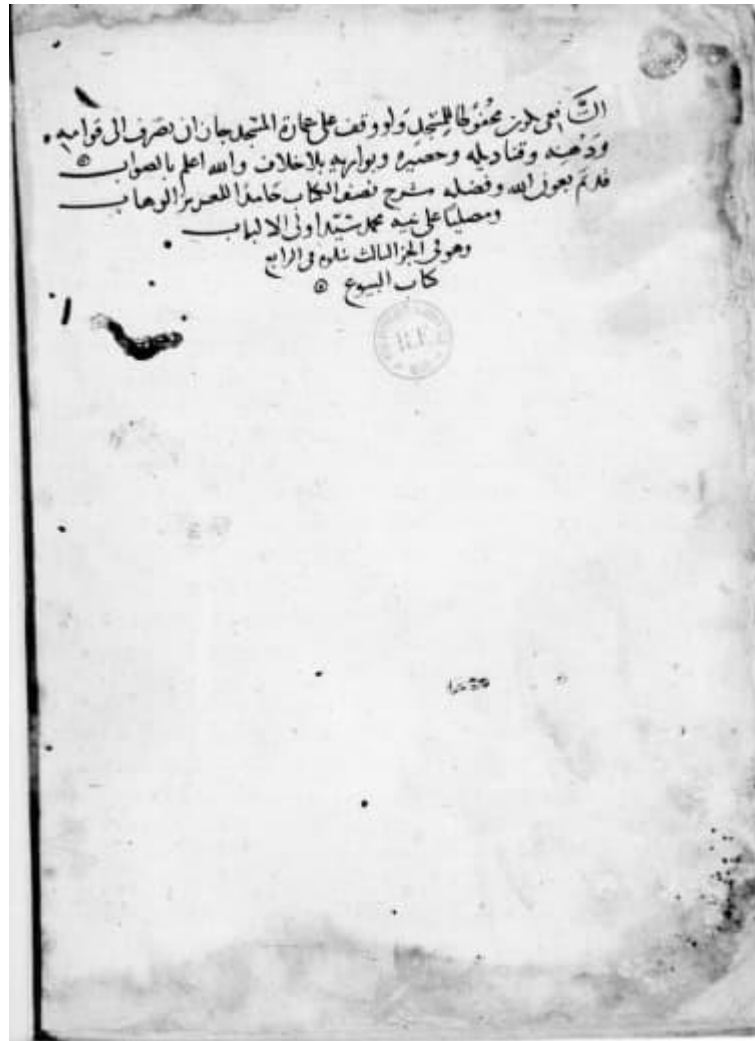 الشافعي يكون محفوظا للمسجد ولو وقف على عمارة المسجد جاز ان يصرف الى قوامه
ودهنه وقناديله وحصيره وبواريه بلا خلاف والله اعلم بالصواب
قد تم بعون الله وفضله شرح نصف الكتاب حامدا للعزيز الوهاب
ومصليا على نبيه محمد سيد اولى الالباب
وهو فى الجزء الثالث يتلوه فى الرابع
كتاب البيوع